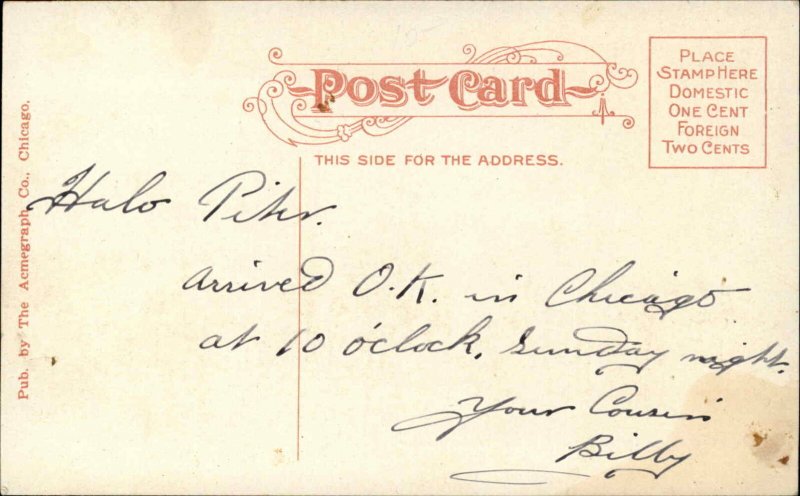 Post Card
PLACE
STAMP HERE
DOMESTIC
ONE CENT
FOREIGN
TWO CENTS
THIS SIDE FOR THE ADDRESS.
Pub. by The Acmegraph Co., Chicago.
Halo Peter.
arrived O.K. in Chicago
at 10 o'clock, Sunday night.
Your Cousin
Billy